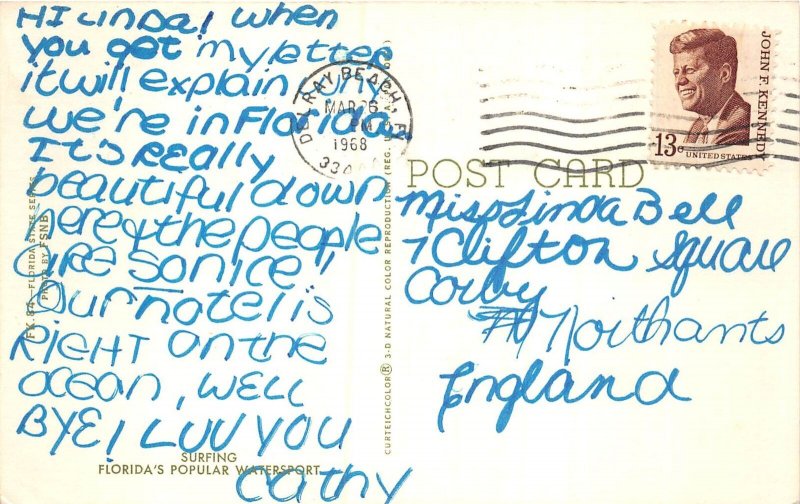 HI LINDA! when
you get my letter
it will explain why
we're in Florida.
It's REally
beautiful down
here & the people
are so nice!
Our hotel is
RIGHT on the
ocean, WELL
BYE, I LUV YOU
Cathy
SURFING
FLORIDA'S POPULAR WATERSPORT
FLORIDA STATE SERIES
PHOTO BY FSNB
CURTEICHCOLOR® 3-D NATURAL COLOR REPRODUCTION (REG. U.S.A.
DELRAY BEACH,
MAR 26
PM
1968
POST CARD
JOHN F. KENNEDY
13c
UNITED STATES
Miss Linda Bell
7 Clifton Square
Corby
Northants
England